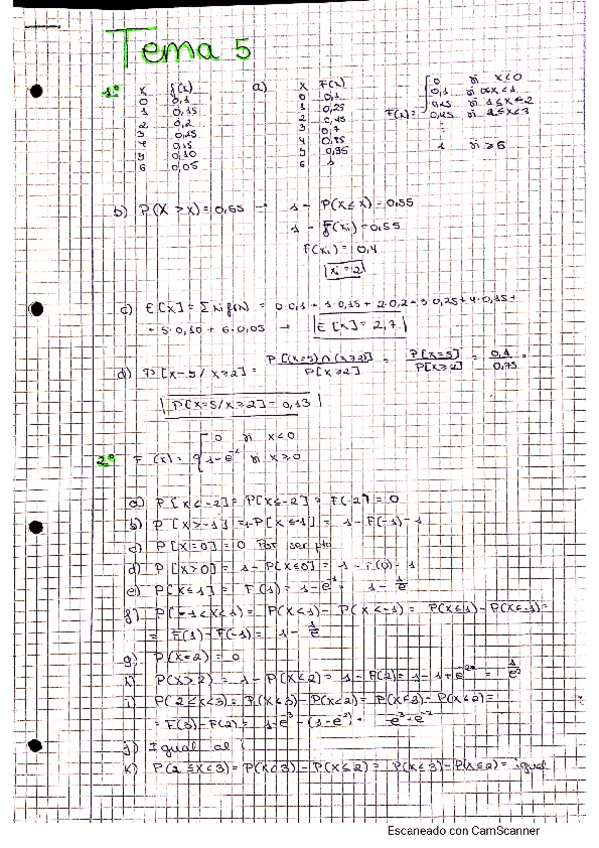 Tema 5
1º x f(x) a) x F(x)
0 0,1 0 0,1 0 si x<0
1 0,15 1 0,25 0,1 si 0≤x<1
2 0,2 2 0,45 0,25 si 1≤x<2
3 0,25 3 0,7 F(x)= 0,45 si 2≤x<3
4 0,15 4 0,85 :
5 0,10 5 0,95 1 si ≥6
6 0,05 6 1
b) P(X > x) = 0,55 → 1 - P(X≤x) = 0,55
1 - F(xi) = 0,55
F(xi) = 0,4
xi = 2
c) E[X] = Σxi f(xi) = 0·0,1 + 1·0,15 + 2·0,2 + 3·0,25 + 4·0,15 +
+ 5·0,10 + 6·0,05 → E[X] = 2,7
d) P[X=5/X≥2] = P[(X=5)∩(X≥2)] / P[X≥2] = P[X=5] / P[X≥2] = 0,1 / 0,75 =
P[X=5/X≥2] = 0,13
2º F(x) = 0 si x<0
1-e^-x si x≥0
a) P[X<-2] = P[X≤-2] = F(-2) = 0
b) P[X>-1] = 1-P[X≤-1] = 1-F(-1) = 1
c) P[X=0] = 0 Por ser pto
d) P[X>0] = 1 - P[X≤0] = 1 - F(0) = 1
e) P[X≤1] = F(1) = 1-e^-1 = 1 - 1/e
f) P(-1<X<1) = P(X<1) - P(X≤-1) = P(X≤1) - P(X≤-1) =
= F(1) - F(-1) = 1 - 1/e
g) P(X=2) = 0
h) P(X>2) = 1 - P(X≤2) = 1 - F(2) = 1 - 1 + e^-2 = 1/e²
i) P(2≤X≤3) = P(X≤3) - P(X<2) = P(X≤3) - P(X≤2) =
= F(3) - F(2) = 1-e^-3 - (1-e^-2) =
j) Igual al i
k) P(2≤X<3) = P(X<3) - P(X≤2) = P(X≤3) - P(X≤2) = igual
Escaneado con CamScanner